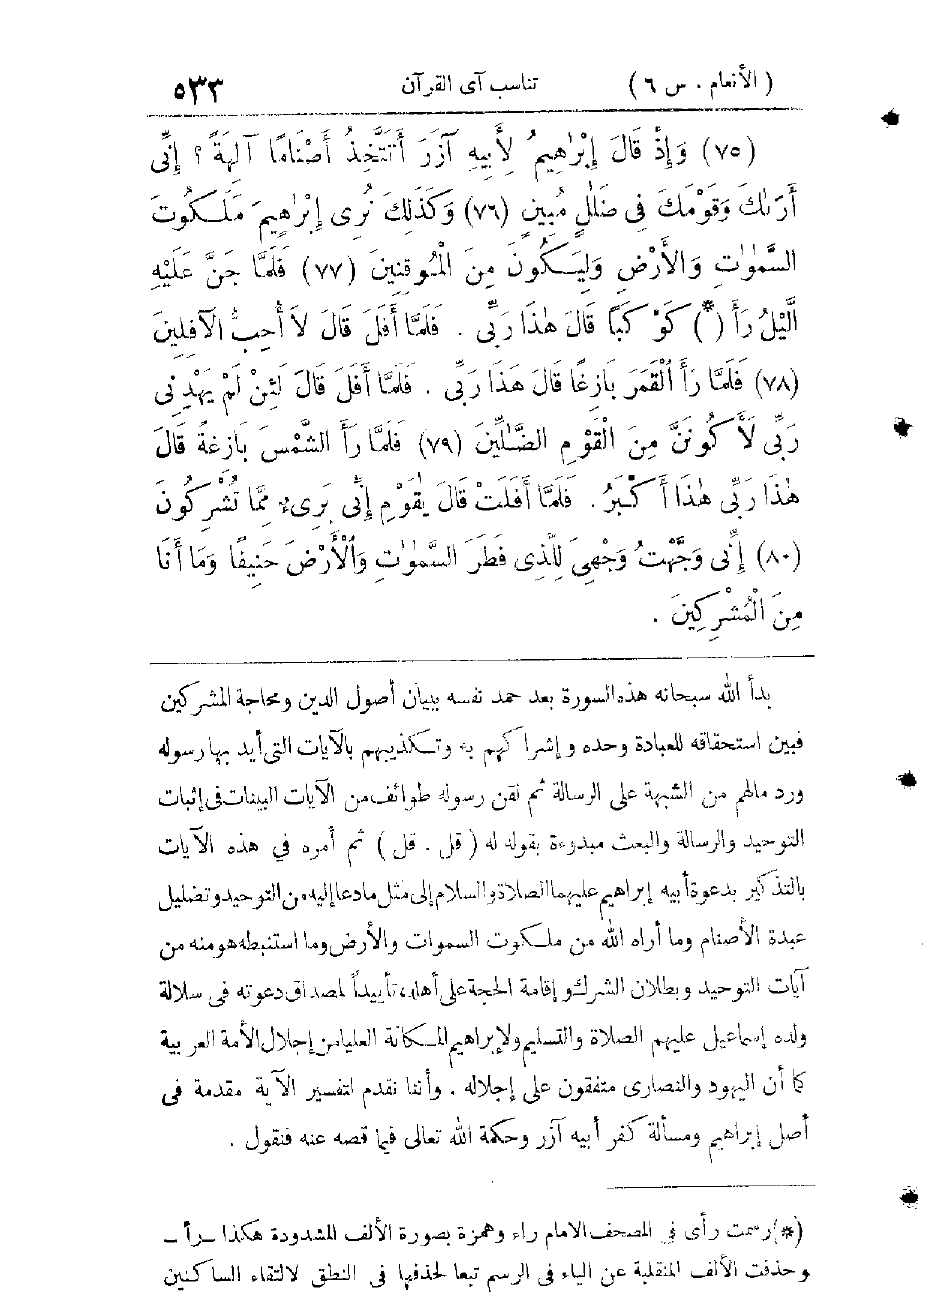 ( الأنعام . س ٦ ) تناسب آى القرآن ٥٣٣
(٧٥) وَإِذْ قَالَ إِبْرٰهِيمُ لِأَبِيهِ آزَرَ أَتَتَّخِذُ أَصْنَامًا آلِهَةً ؟ إِنِّى
أَرٰىكَ وَقَوْمَكَ فِى ضَلٰلٍ مُبِينٍ (٧٦) وَكَذٰلِكَ نُرِى إِبْرٰهِيمَ مَلَكُوتَ
السَّمٰوٰتِ وَالْأَرْضِ وَلِيَكُونَ مِنَ الْمُوقِنِينَ (٧٧) فَلَمَّا جَنَّ عَلَيْهِ
الَّيْلُ رَأَ (*) كَوْكَبًا قَالَ هٰذَا رَبِّى . فَلَمَّا أَفَلَ قَالَ لَا أُحِبُّ الْآفِلِينَ
(٧٨) فَلَمَّا رَأَ الْقَمَرَ بَازِغًا قَالَ هَذَا رَبِّى . فَلَمَّا أَفَلَ قَالَ لَئِنْ لَمْ يَهْدِنِى
رَبِّى لَأَكُونَنَّ مِنَ الْقَوْمِ الضَّالِّينَ (٧٩) فَلَمَّا رَأَ الشَّمْسَ بَازِغَةً قَالَ
هٰذَا رَبِّى هٰذَا أَكْبَرُ . فَلَمَّا أَفَلَتْ قَالَ يٰقَوْمِ إِنِّى بَرِىء مِمَّا تُشْرِكُونَ
(٨٠) إِنِّى وَجَّهْتُ وَجْهِىَ لِلَّذِى فَطَرَ السَّمٰوٰتِ وَالْأَرْضَ حَنِيفًا وَمَا أَنَا
مِنَ الْمُشْرِكِينَ .
بدأ الله سبحانه هذه السورة بعد حمد نفسه ببيان أصول الدين ومحاجة المشركين
فبين استحقاقه للعبادة وحده وإشراكهم به وتكذيبهم بالآيات التى أيد بها رسوله
ورد مالهم من الشبهة على الرسالة ثم لقن رسوله طوائف من الآيات البينات فى إثبات
التوحيد والرسالة والبعث مبدوءة بقوله له ( قل . قل ) ثم أمره في هذه الآيات
بالتذكير بدعوة أبيه إبراهيم عليهما الصلاة والسلام إلى مثل مادعا إليه من التوحيد وتضليل
عبدة الأصنام وما أراه الله من ملكوت السموات والأرض وما استنبطه هو منه من
آيات التوحيد وبطلان الشرك وإقامة الحجة على أهله، تأييداً لمصداق دعوته فى سلالة
ولده إسماعيل عليهم الصلاة والتسليم ولإبراهيم المكانة العليا من إجلال الأمة العربية
كما أن اليهود والنصارى متفقون على إجلاله . وأننا نقدم لتفسير الآية مقدمة فى
أصل إبراهيم ومسألة كفر أبيه آزر وحكمة الله تعالى فيما قصه عنه فنقول .
(*) رسمت رأى فى المصحف الامام راء وهمزة بصورة الألف المشدودة هكذا ــ رأ ــ
وحذفت الألف المنقلبة عن الياء فى الرسم تبعا لحذفها فى النطق لالتقاء الساكنين